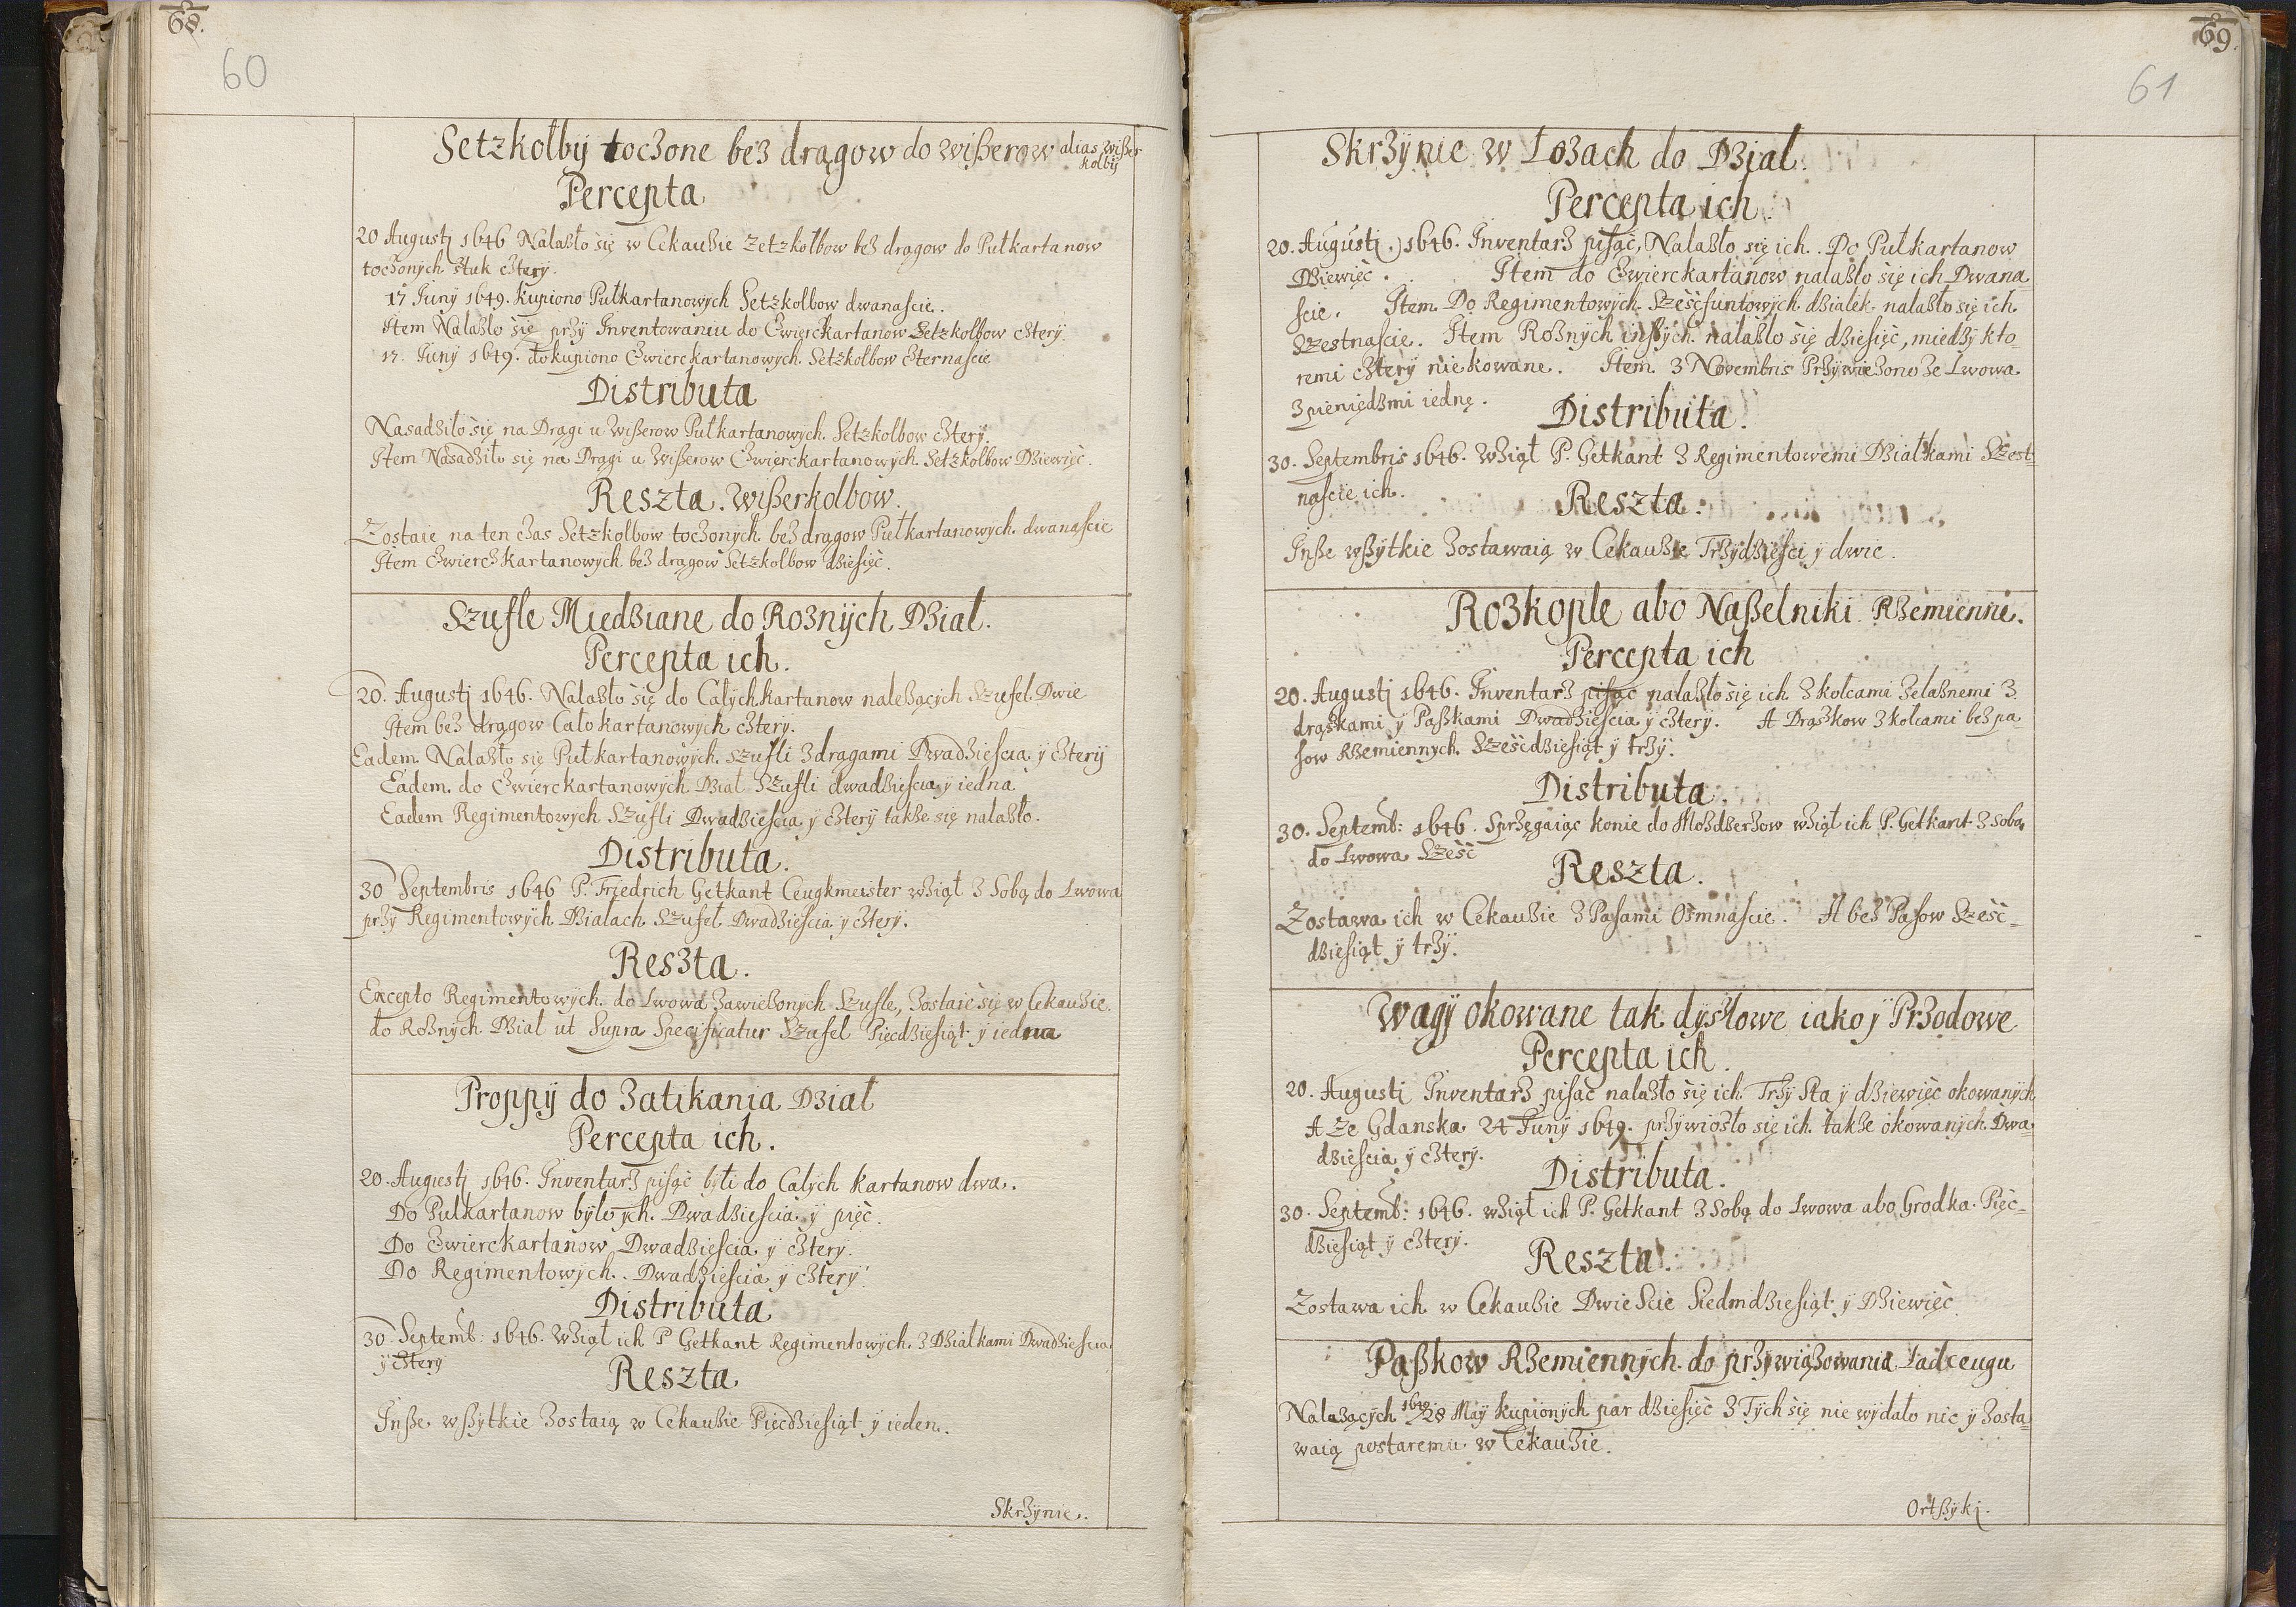 68.
60
Setzkolbÿ toczone bez drągow do wißerow alias wißer
kolbÿ
Percepta
20 Augustj 1646 Nalazło się w Cekauzie Zetzkolbow bez drągow do Pułkartanow
toczonÿch sztuk czterÿ.
17 Junÿ 1649. kupiono Pułkartanowÿch Setzkolbow dwanascie.
Item Nalazło się przÿ Inventowaniu do Czwierckartanow Setzkolbow czterÿ.
17. Junÿ 1649. dokupiono Czwierckartanowÿch Setzkolbow czternascie
Distributa
Nasadziło się na Drągi u Wißerow Pułkartanowÿch. Setzkolbow czterÿ.
Item Nasadziło się na Drągi u Wißerow Czwierckartanowÿch Setzkolbow Dziewięć.
Reszta. Wißerkolbow.
Zostaie na ten czas Setzkolbow toczonÿch bez drągow Pułkartanowÿch dwanascie
Item Czwierczkartanowÿch bez drągow Setzkolbow dziesięć.
Szufle Miedziane do Roznÿch Dział.
Percepta ich.
20. Augustj 1646. Nalazło się do Całÿchkartanow nalezącÿch Szufel Dwie
Item bez drągow Całokartanowÿch cztery.
Eadem. Nalazło się Pułkartanowÿch szufli z drągami Dwadziescia ÿ czterÿ
Eadem. do Czwierckartanowÿch Dział Szufli dwadziescia y iedna
Eadem Regimentowÿch Szufli Dwadziescia ÿ czterÿ takze się nalazło.
Distributa.
30 Septembris 1646 P. Friedrich Getkant Ceugkmeister wziął z Sobą do Lwowa
przÿ Regimentowÿch Działach Szufel Dwadziescia ÿ czterÿ.
Reszta.
Excepto Regimentowÿch do Lwowa zawiezonÿch Szufle, zostaie się w Cekauzie
do Roznÿch Dział ut Supra Specificatur Szufel Pięcdziesiąt ÿ iedna
Proppÿ do zatikania Dział
Percepta ich.
20. Augustj 1646. Inventarz pisąc bÿli do Całÿch kartanow dwa.
Do Pulkartanow bÿło ich. Dwadziescia ÿ pięć.
Do Czwierckartanow Dwadziescia ÿ czterÿ.
Do Regimentowÿch. Dwadziescia ÿ czterÿ.
Distributa
30 Septemb: 1646. Wziął ich P Getkant Regimentowÿch z Działkami Dwadziescia
ÿ czterÿ
Reszta
Inße wßÿtkie zostaią w Cekauzie Pięcdziesiąt ÿ ieden.
Skrzÿnie.
69.
61
Skrzÿnie w Łozach do Dział.
Percepta ich.
20. Augustj. 1646. Inventarz pisąć, Nalazło się ich. Do Pułkartanow
Dziewięć. Item do Czwierckartanow nalazło się ich Dwana
scie. Item Do Regimentowÿch Sześcfuntowÿch działek nalazło się ich
Szesnascie. Item Roznÿch inßÿch nalazło się dziesięć, miedzÿ kto-
remi czterÿ nie kowane. Item. 3 Novembris Przÿwiezono ze Lwowa
z pieniędzmi iednę.
Distributa.
30. Septembris 1646. Wziął P. Getkant z Regimentowemi Działkami Szest-
nascie ich.
Reszta.
Inße wßÿtkie zostawaią w Cekauzie Trzÿdziesci ÿ dwie.
Rozkople abo Naßelniki Rzemienni.
Percepta ich
20. Augustj 1646. Inventarz pisąc nalazło się ich z kolcami zelaznemi z
drązkami ÿ Paßkami Dwadziescia ÿ czterÿ. A Drązkow z kolcami bez pa
sow Rzemiennych. Sześcdziesiąt ÿ trzÿ.
Distributa.
30. Septemb: 1646. Sprzęgaiąc konie do Mozdzerzow wziął ich P. Getkant z sobą
do Lwowa Sześć
Reszta.
Zostawa ich w Cekauzie z Pasami Osmnascie. A bez Pasow Sześć-
dziesiąt ÿ trzÿ.
Wagÿ okowane tak dÿszłowe iako ÿ Przodowe
Percepta ich.
20. Augusti Inventarz pisąć nalazło się ich Trzÿ Sta ÿ dziewięć okowanÿch
A ze Gdanska 24 Junÿ 1649. przÿwiozło się ich takze okowanÿch Dwa
dziescia ÿ czterÿ.
Distributa.
30. Septemb: 1646. wziął ich P. Getkant z Sobą do Lwowa abo Grodka. Pięć-
dziesiąt ÿ czterÿ.
Reszta.
Zostawa ich w Cekauzie Dwie Scie Siedmdziesiąt ÿ Dziewięć
Paßkow Rzemiennÿch do przÿwiązowania Ladceugu
Nalazącÿch 1649 28 Maÿ kupionÿch par dziesięć z Tÿch się nie wÿdało nic ÿ zosta
waią postaremu w Cekauzie.
Ortßÿkj.